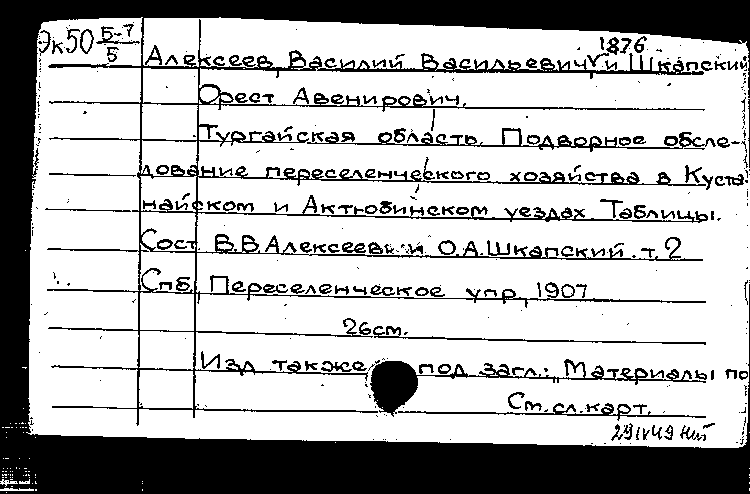 Эк50 Б-7/5
1876
Алексеев, Василий Васильевич, и Шкапский
Орест Авенирович.
Тургайская область. Подворное обсле-
дование переселенческого хозяйства в Куста-
найском и Актюбинском уездах. Таблицы.
Сост. В.В.Алексеев и О.А.Шкапский. т. 2
Спб, Переселенческое упр, 1907
26см.
Изд также под загл.: „Материалы по
См.сл.карт.
29 IV 49